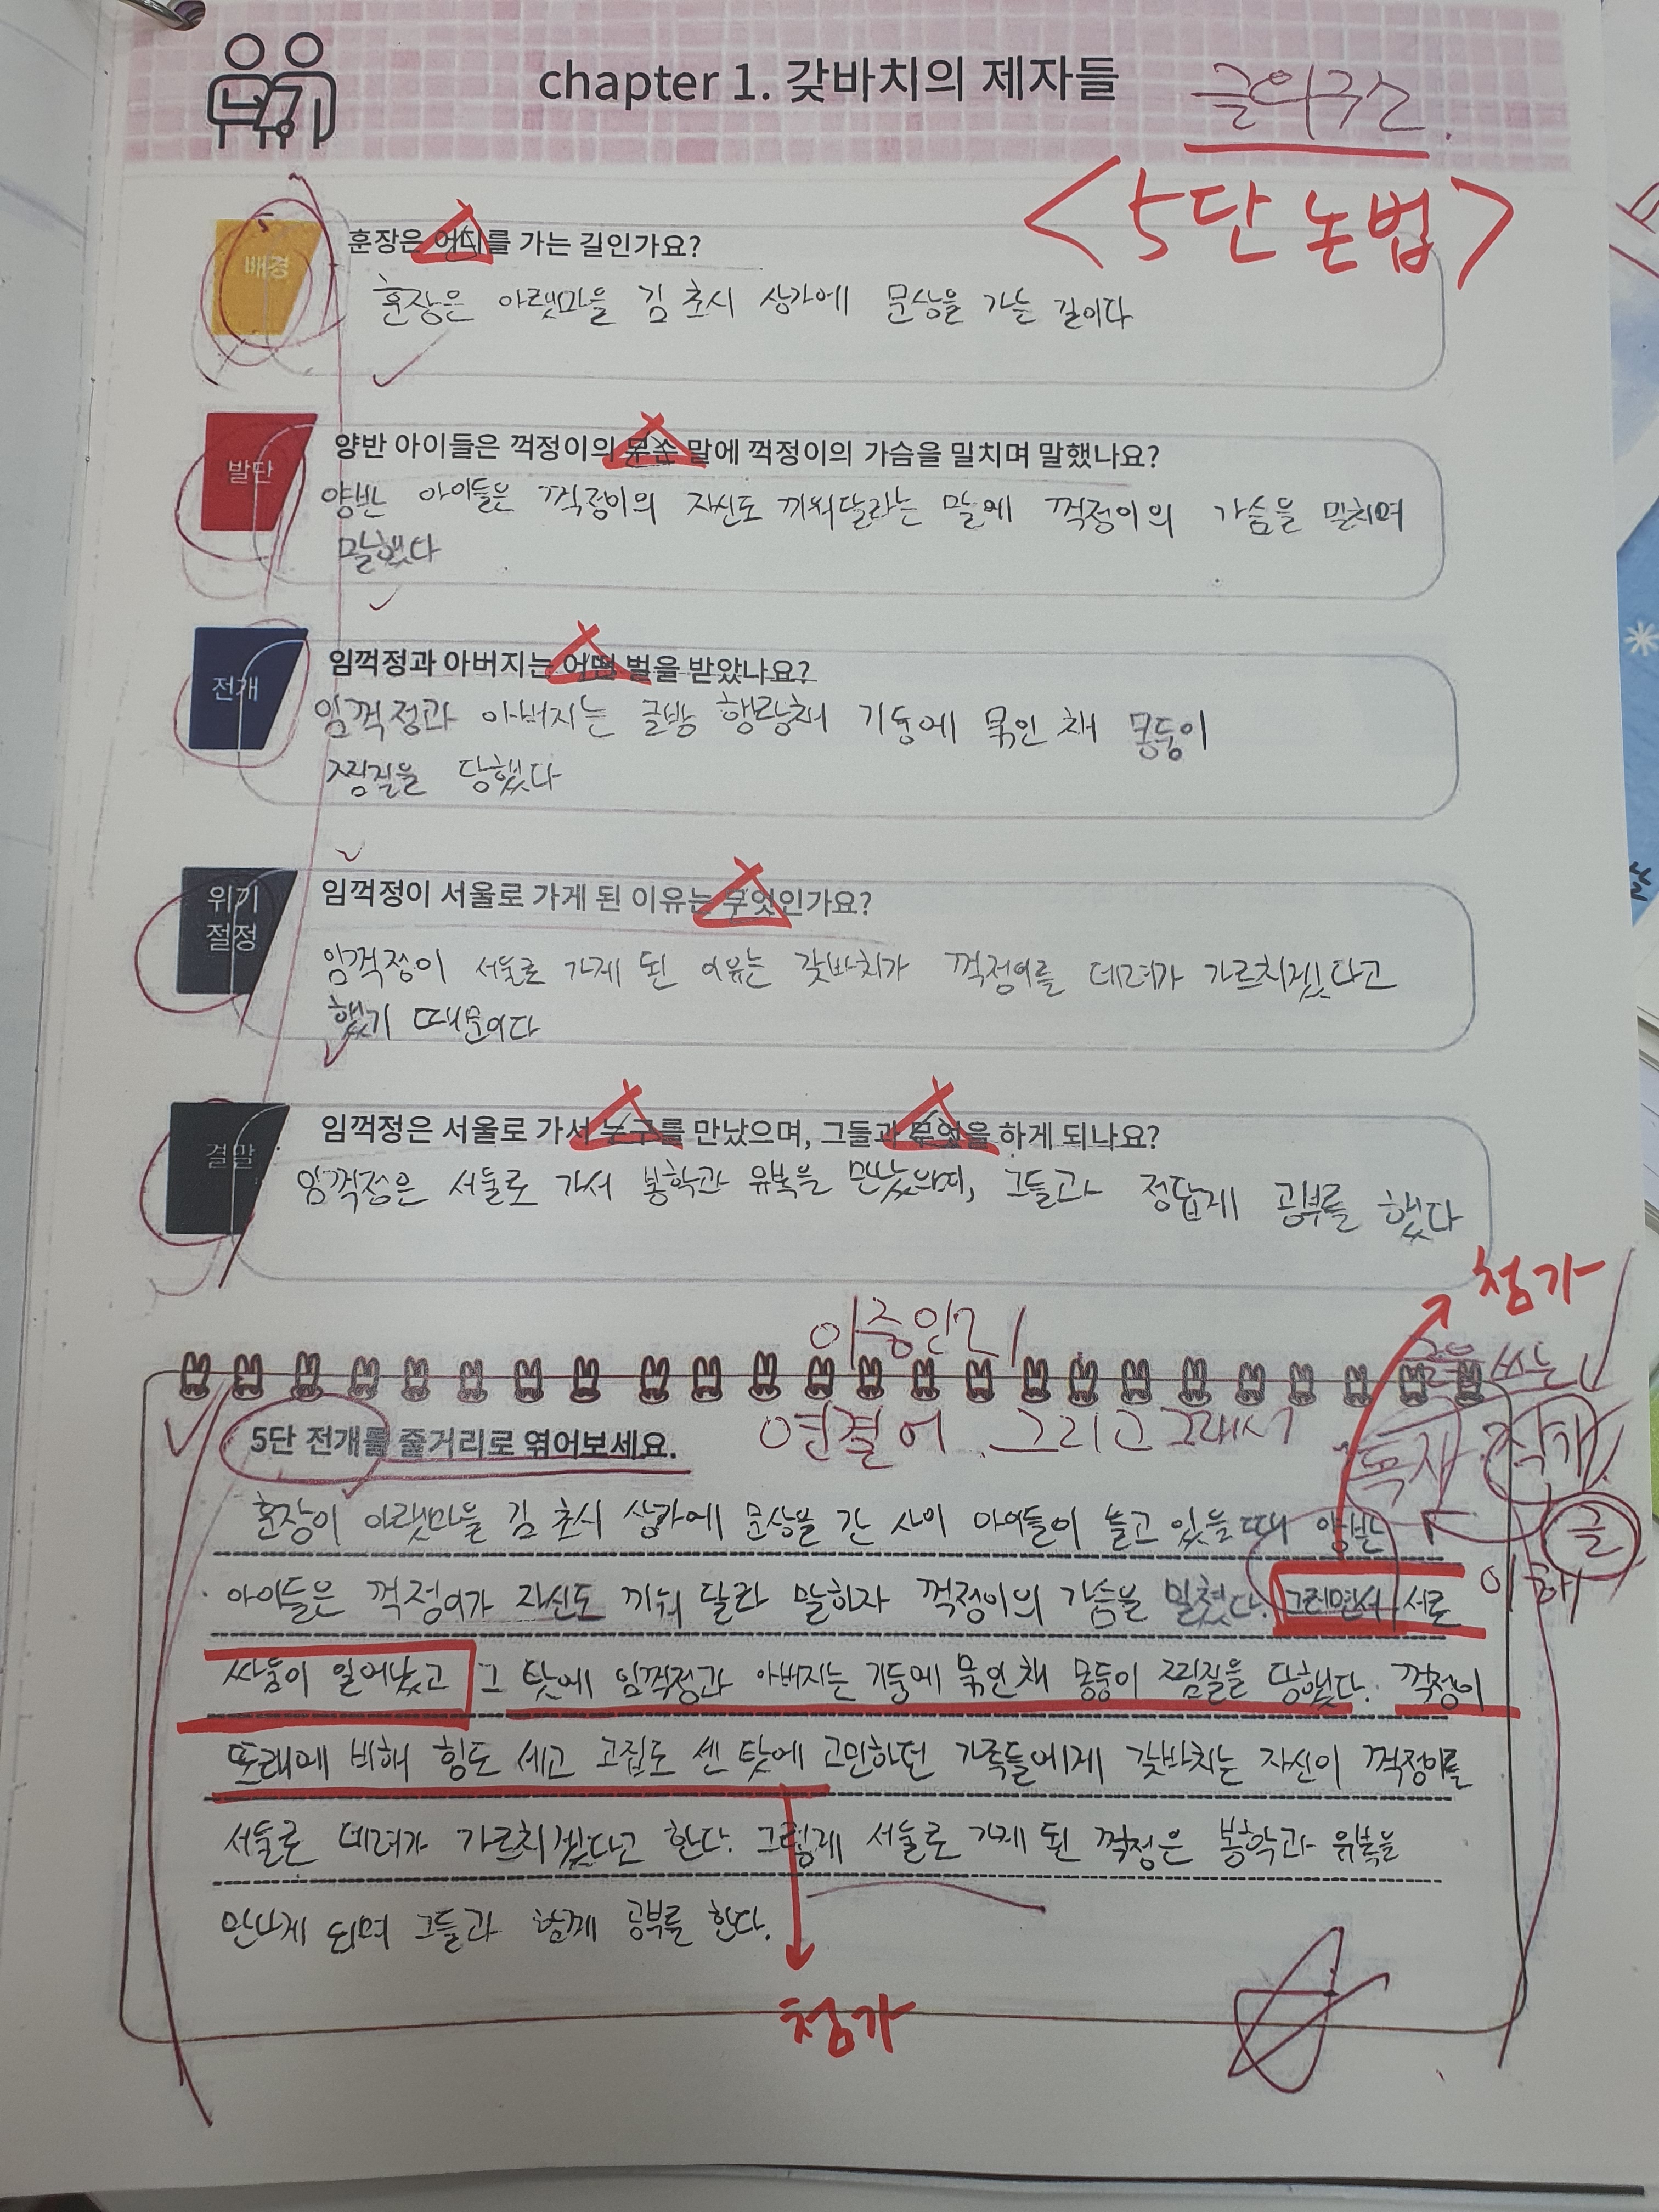 chapter 1. 갖바치의 제자들
글의구조.
<5단 논법>
배경
훈장은 어디를 가는 길인가요?
훈장은 아랫마을 김 초시 상가에 문상을 가는 길이다
발단
양반 아이들은 꺽정이의 무슨 말에 꺽정이의 가슴을 밀치며 말했나요?
양반 아이들은 꺽정이의 자신도 끼워달라는 말에 꺽정이의 가슴을 밀치며
말했다
전개
임꺽정과 아버지는 어떤 벌을 받았나요?
임꺽정과 아버지는 글방 행랑채 기둥에 묶인 채 몽둥이
찜질을 당했다
위기
절정
임꺽정이 서울로 가게 된 이유는 무엇인가요?
임꺽정이 서울로 가게 된 이유는 갖바치가 꺽정이를 데려가 가르치겠다고
했기 때문이다
결말
임꺽정은 서울로 가서 누구를 만났으며, 그들과 무엇을 하게 되나요?
임꺽정은 서울로 가서 봉학과 유복을 만났으며, 그들과 정답게 공부를 했다
첨가
쓰는
5단 전개를 줄거리로 엮어보세요.
연결어 그리고 그래서
독재
글
이해
훈장이 아랫마을 김 초시 상가에 문상을 간 사이 아이들이 놀고 있을때 양반
아이들은 꺽정이가 자신도 끼워 달라 말하자 꺽정이의 가슴을 밀쳤다. 그러면서 서로
싸움이 일어났고 그 탓에 임꺽정과 아버지는 기둥에 묶인채 몽둥이 찜질을 당했다. 꺽정이
또래에 비해 힘도 세고 고집도 센 탓에 고민하던 가족들에게 갖바치는 자신이 꺽정이를
서울로 데려가 가르치겠다고 한다. 그렇게 서울로 가게 된 꺽정은 봉학과 유복을
만나게 되며 그들과 함께 공부를 한다.
첨가